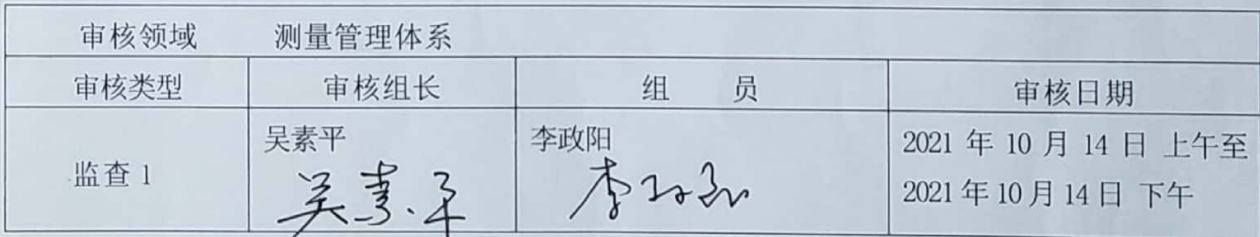 审核领域 测量管理体系
审核类型 审核组长 组 员 审核日期
监查 1
吴素平
吴素平
李政阳
2021 年 10 月 14 日 上午至
2021 年 10 月 14 日 下午